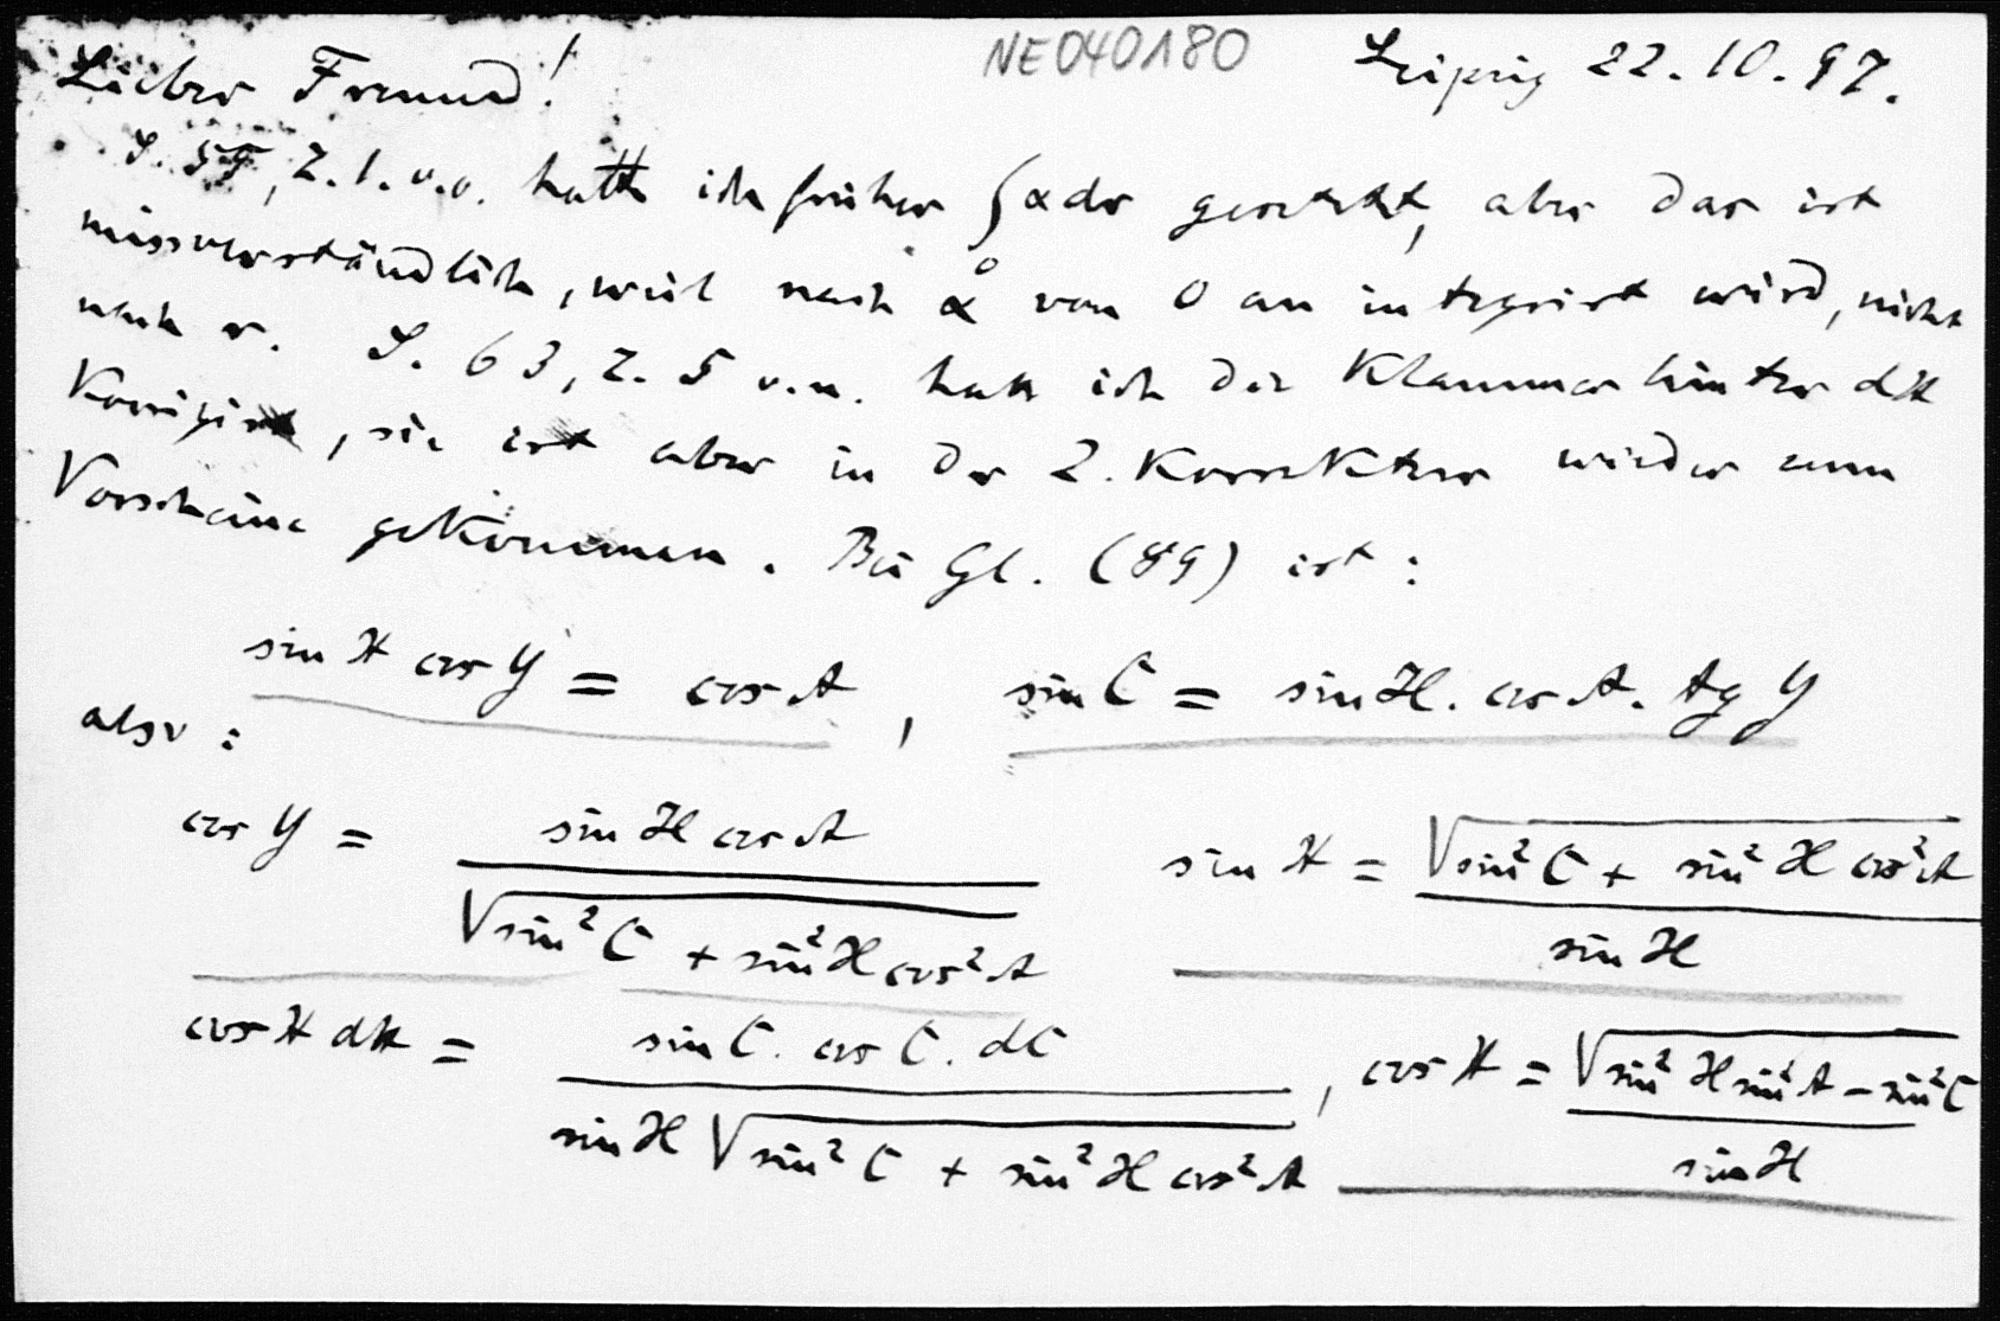 NE040180
Leipzig 22.10.97.
Lieber Freund!
S. 55, Z. 1. v. o. hatte ich früher ∫₀ α dr gesetzt, aber das ist
missverständlich, weil nach α von 0 an integrirt wird, nicht
nach r. S. 63, Z. 5 v. u. hatte ich die Klammer hinter dX
Korrigirt, sie ist aber in der 2. Korrektur wieder zum
Vorscheine gekommen. Bei Gl. (89) ist:
sin X cos Y = cos A, sin C = sin H . cos A . tg Y
also:
cos Y = sin H cos A / √(sin² C + sin² H cos² A) sin X = √(sin² C + sin² H cos² A) / sin H
cos X dX = sin C . cos C . dC / sin H √(sin² C + sin² H cos² A), cos X = √(sin² H sin² A − sin² C) / sin H